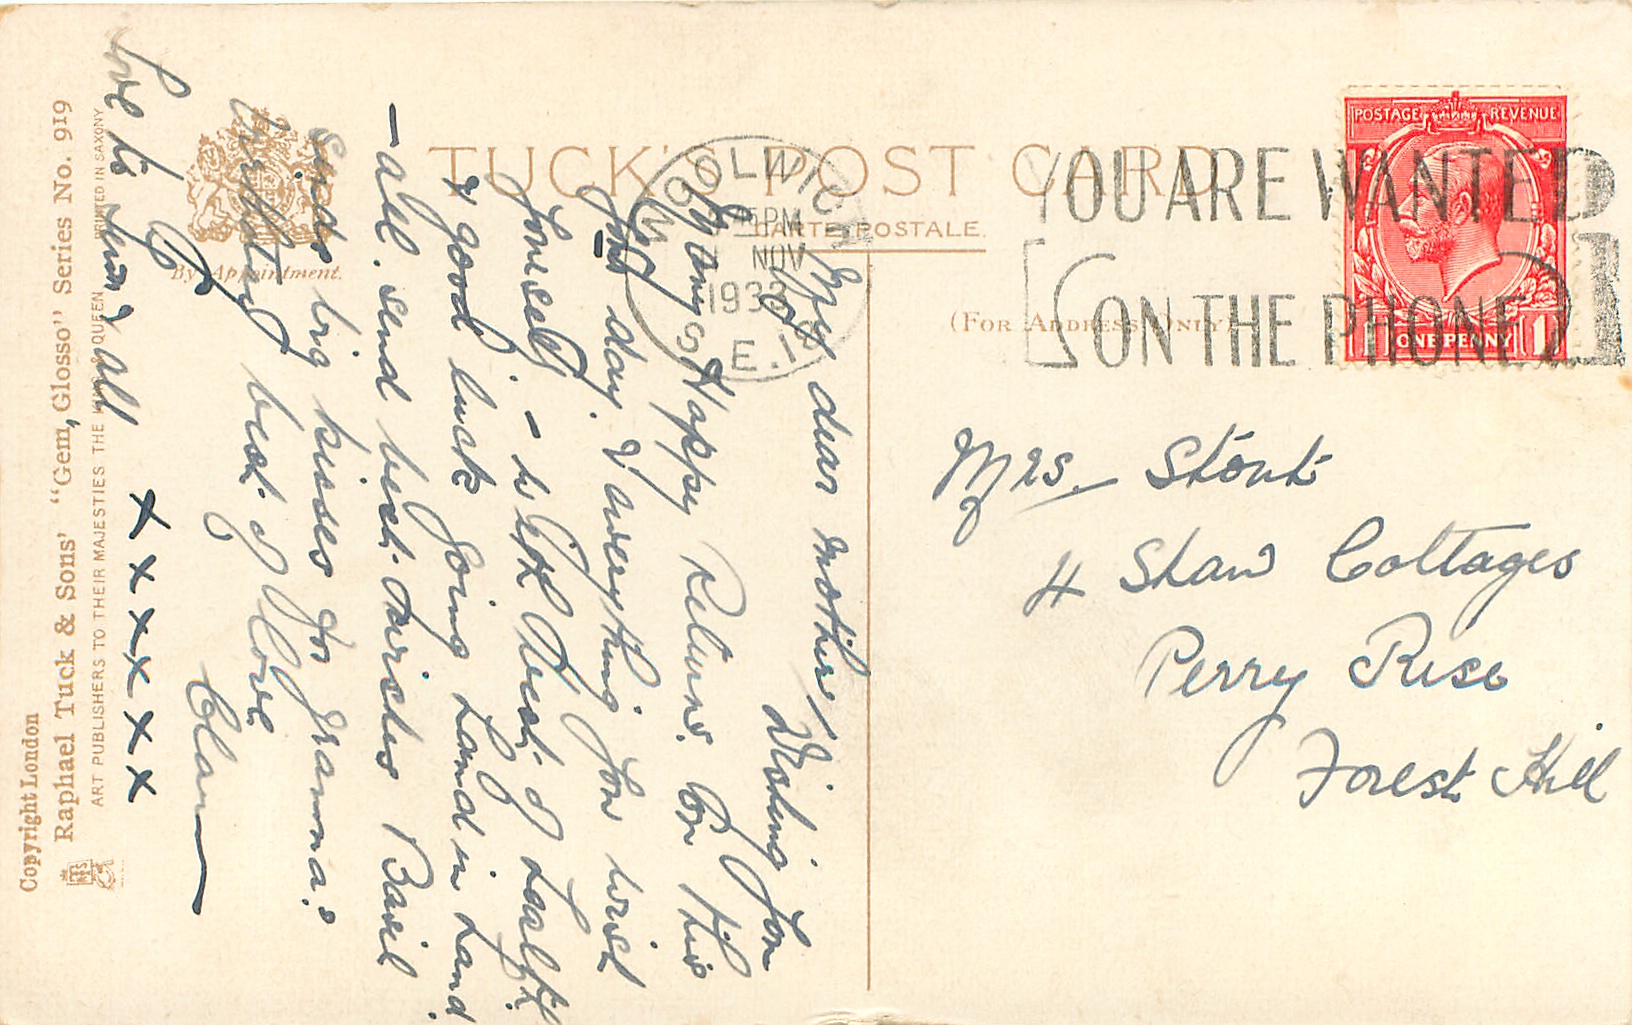 TUCK'S POST CARD
CARTE POSTALE.
(FOR ADDRESS ONLY)
By Appointment.
WOOLWICH
PM
NOV
193
S.E.18
YOU ARE WANTED
ON THE PHONE
POSTAGE REVENUE
1 ONE PENNY 1
Mrs. Stout
4 Shaw Cottages
Perry Rise
Forest Hill
My dear mother/
Wishing you
Many Happy Returns on this
day. & everything you wish
yourself, - with best of health
& good luck going hand in hand
- all send best wishes Basil
sends big kisses for granma.
birthday best of love
Clan
love to Len & all
x x x x x x
Copyright London
Raphael Tuck & Sons' "Gem, Glosso" Series No. 919
ART PUBLISHERS TO THEIR MAJESTIES THE KING & QUEEN. PRINTED IN SAXONY